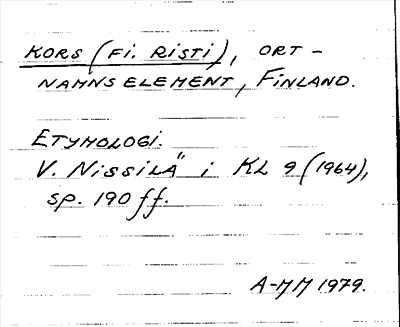 KORS (Fi. Risti), ORT-
NAMNSELEMENT, FINLAND.
ETYMOLOGI.
V. Nissilä i KL 9 (1964),
sp. 190 ff.
A-MM 1979.